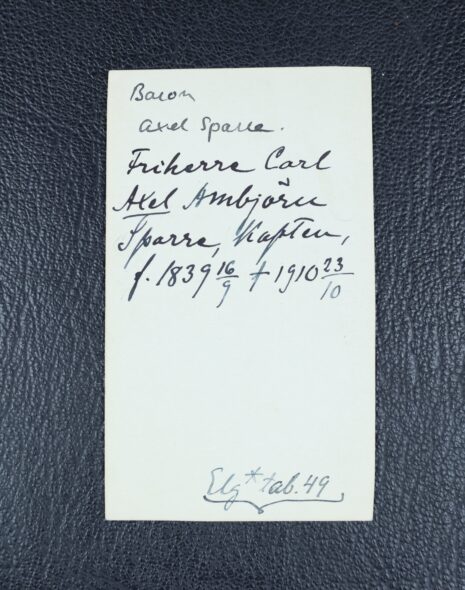 Baron
Axel Sparre.
Friherre Carl
Axel Ambjörn
Sparre, Kapten,
f. 1839 16/9 † 1910 23/10
Elg* tab. 49